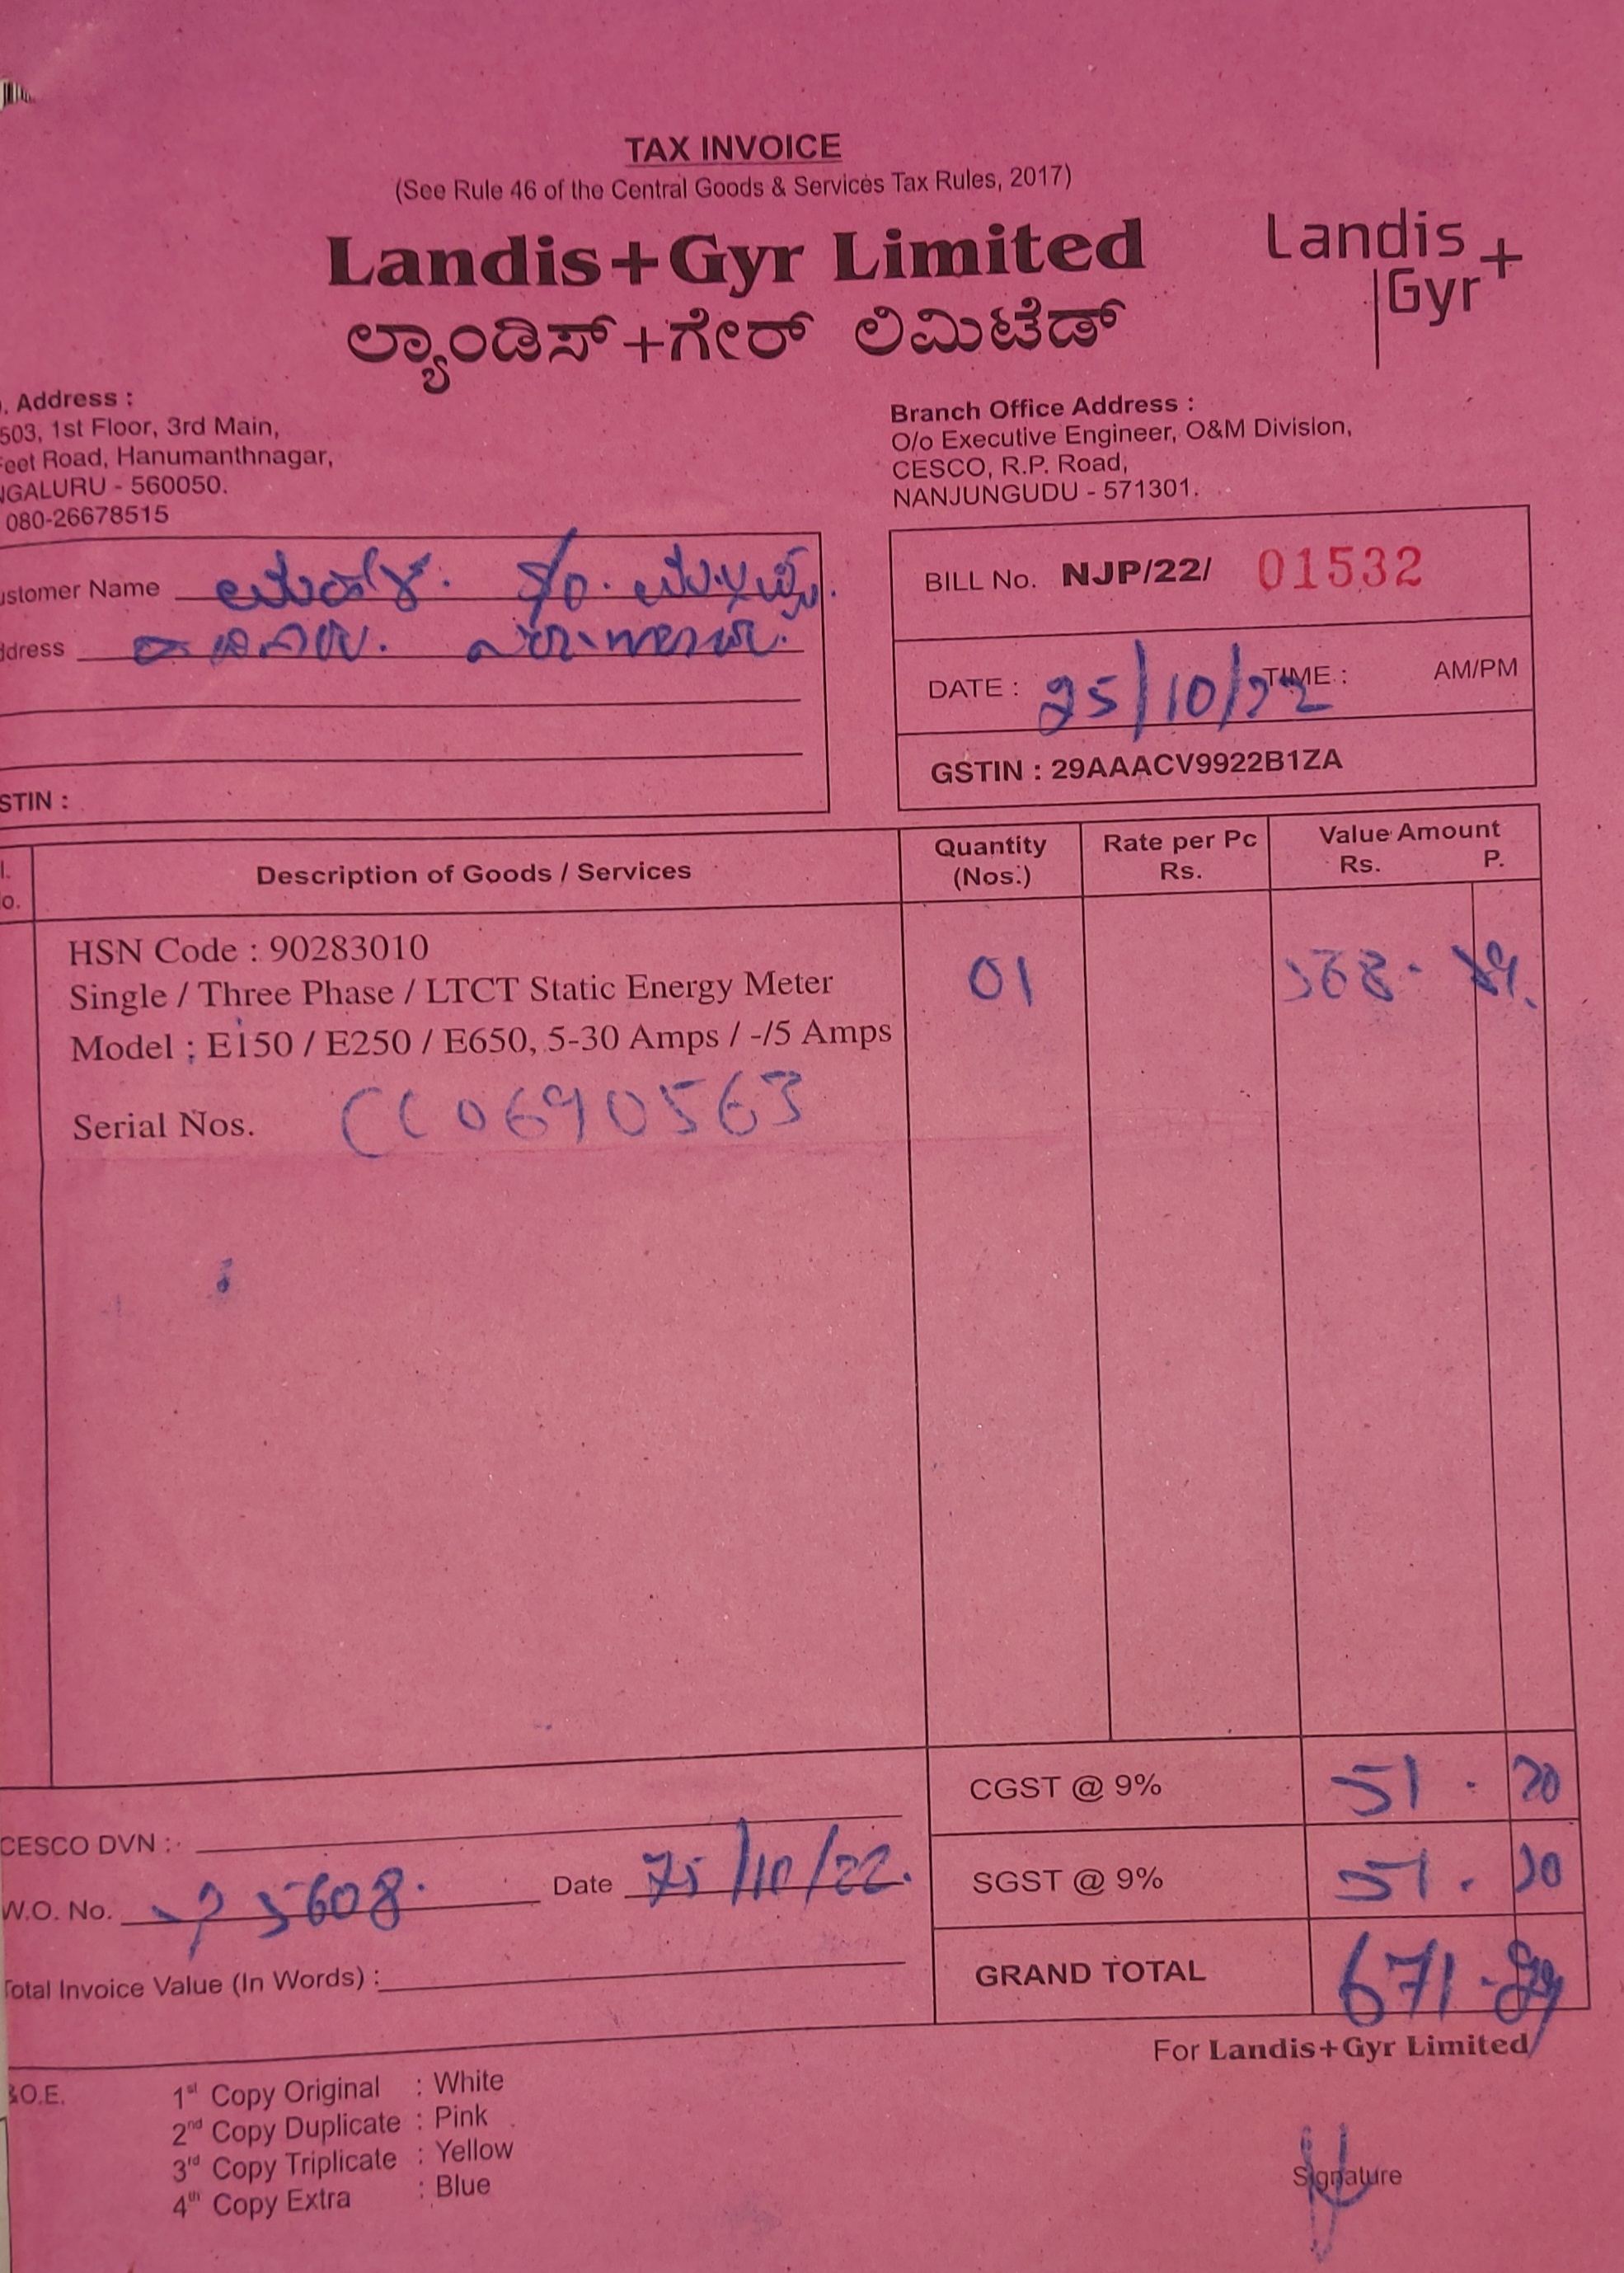 TAX INVOICE
(See Rule 46 of the Central Goods & Services Tax Rules, 2017)
Landis+Gyr Limited
ಲ್ಯಾಂಡಿಸ್+ಗೇರ್ ಲಿಮಿಟೆಡ್
Landis
Gyr+
. Address :
503, 1st Floor, 3rd Main,
eet Road, Hanumanthnagar,
NGALURU - 560050.
080-26678515
Branch Office Address :
O/o Executive Engineer, O&M Division,
CESCO, R.P. Road,
NANJUNGUDU - 571301.
ustomer Name
ddress
STIN :
BILL No. NJP/22/ 01532
DATE : 25/10/22 TIME : AM/PM
GSTIN : 29AAACV9922B1ZA
l. o. Description of Goods / Services Quantity (Nos.) Rate per Pc Rs. Value Amount Rs. P.
HSN Code : 90283010
Single / Three Phase / LTCT Static Energy Meter 01 568.
Model : E150 / E250 / E650, 5-30 Amps / -/5 Amps
Serial Nos. CC0690563
CGST @ 9% 51. 20
SGST @ 9% 51. 20
GRAND TOTAL 671.
CESCO DVN :
W.O. No. 5608. Date 25/10/22.
Total Invoice Value (In Words) :
For Landis+Gyr Limited
&O.E.
1st Copy Original : White
2nd Copy Duplicate : Pink
3rd Copy Triplicate : Yellow
4th Copy Extra : Blue
Signature